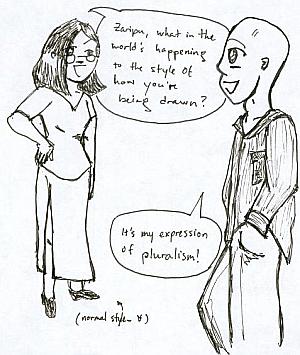 Zaripu, what in the
world's happening
to the style of
how you're
being drawn?
It's my expression
of pluralism!
(normal style